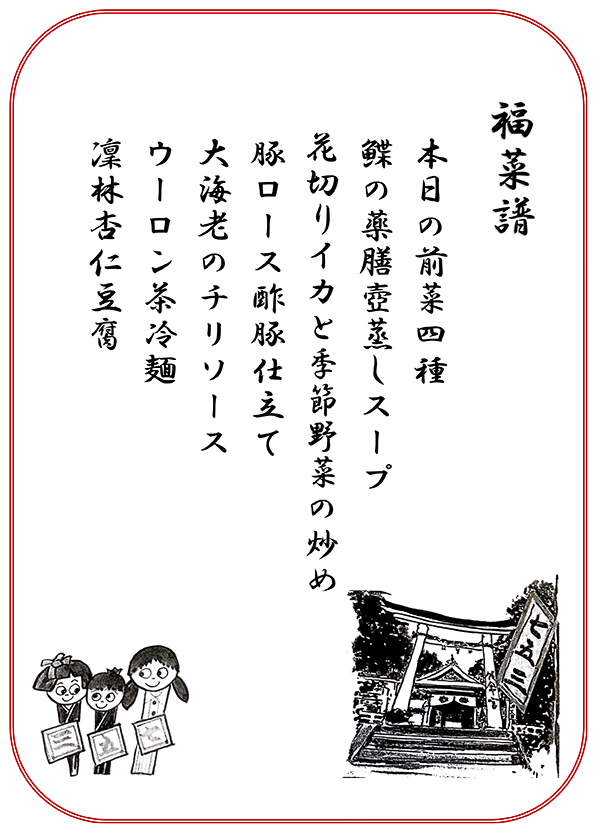 福菜譜
本日の前菜四種
鰈の薬膳壺蒸しスープ
花切りイカと季節野菜の炒め
豚ロース酢豚仕立て
大海老のチリソース
ウーロン茶冷麺
凜林杏仁豆腐
七五三
三
五
七